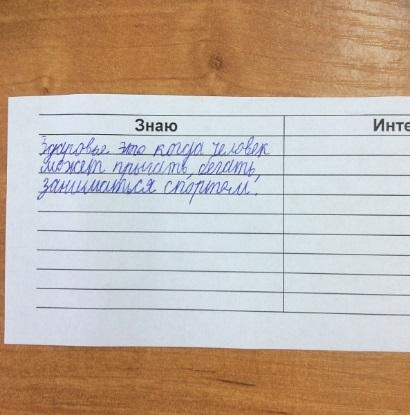 Знаю
Инте
Здоровье это когда человек
может прыгать, бегать,
заниматься спортом.